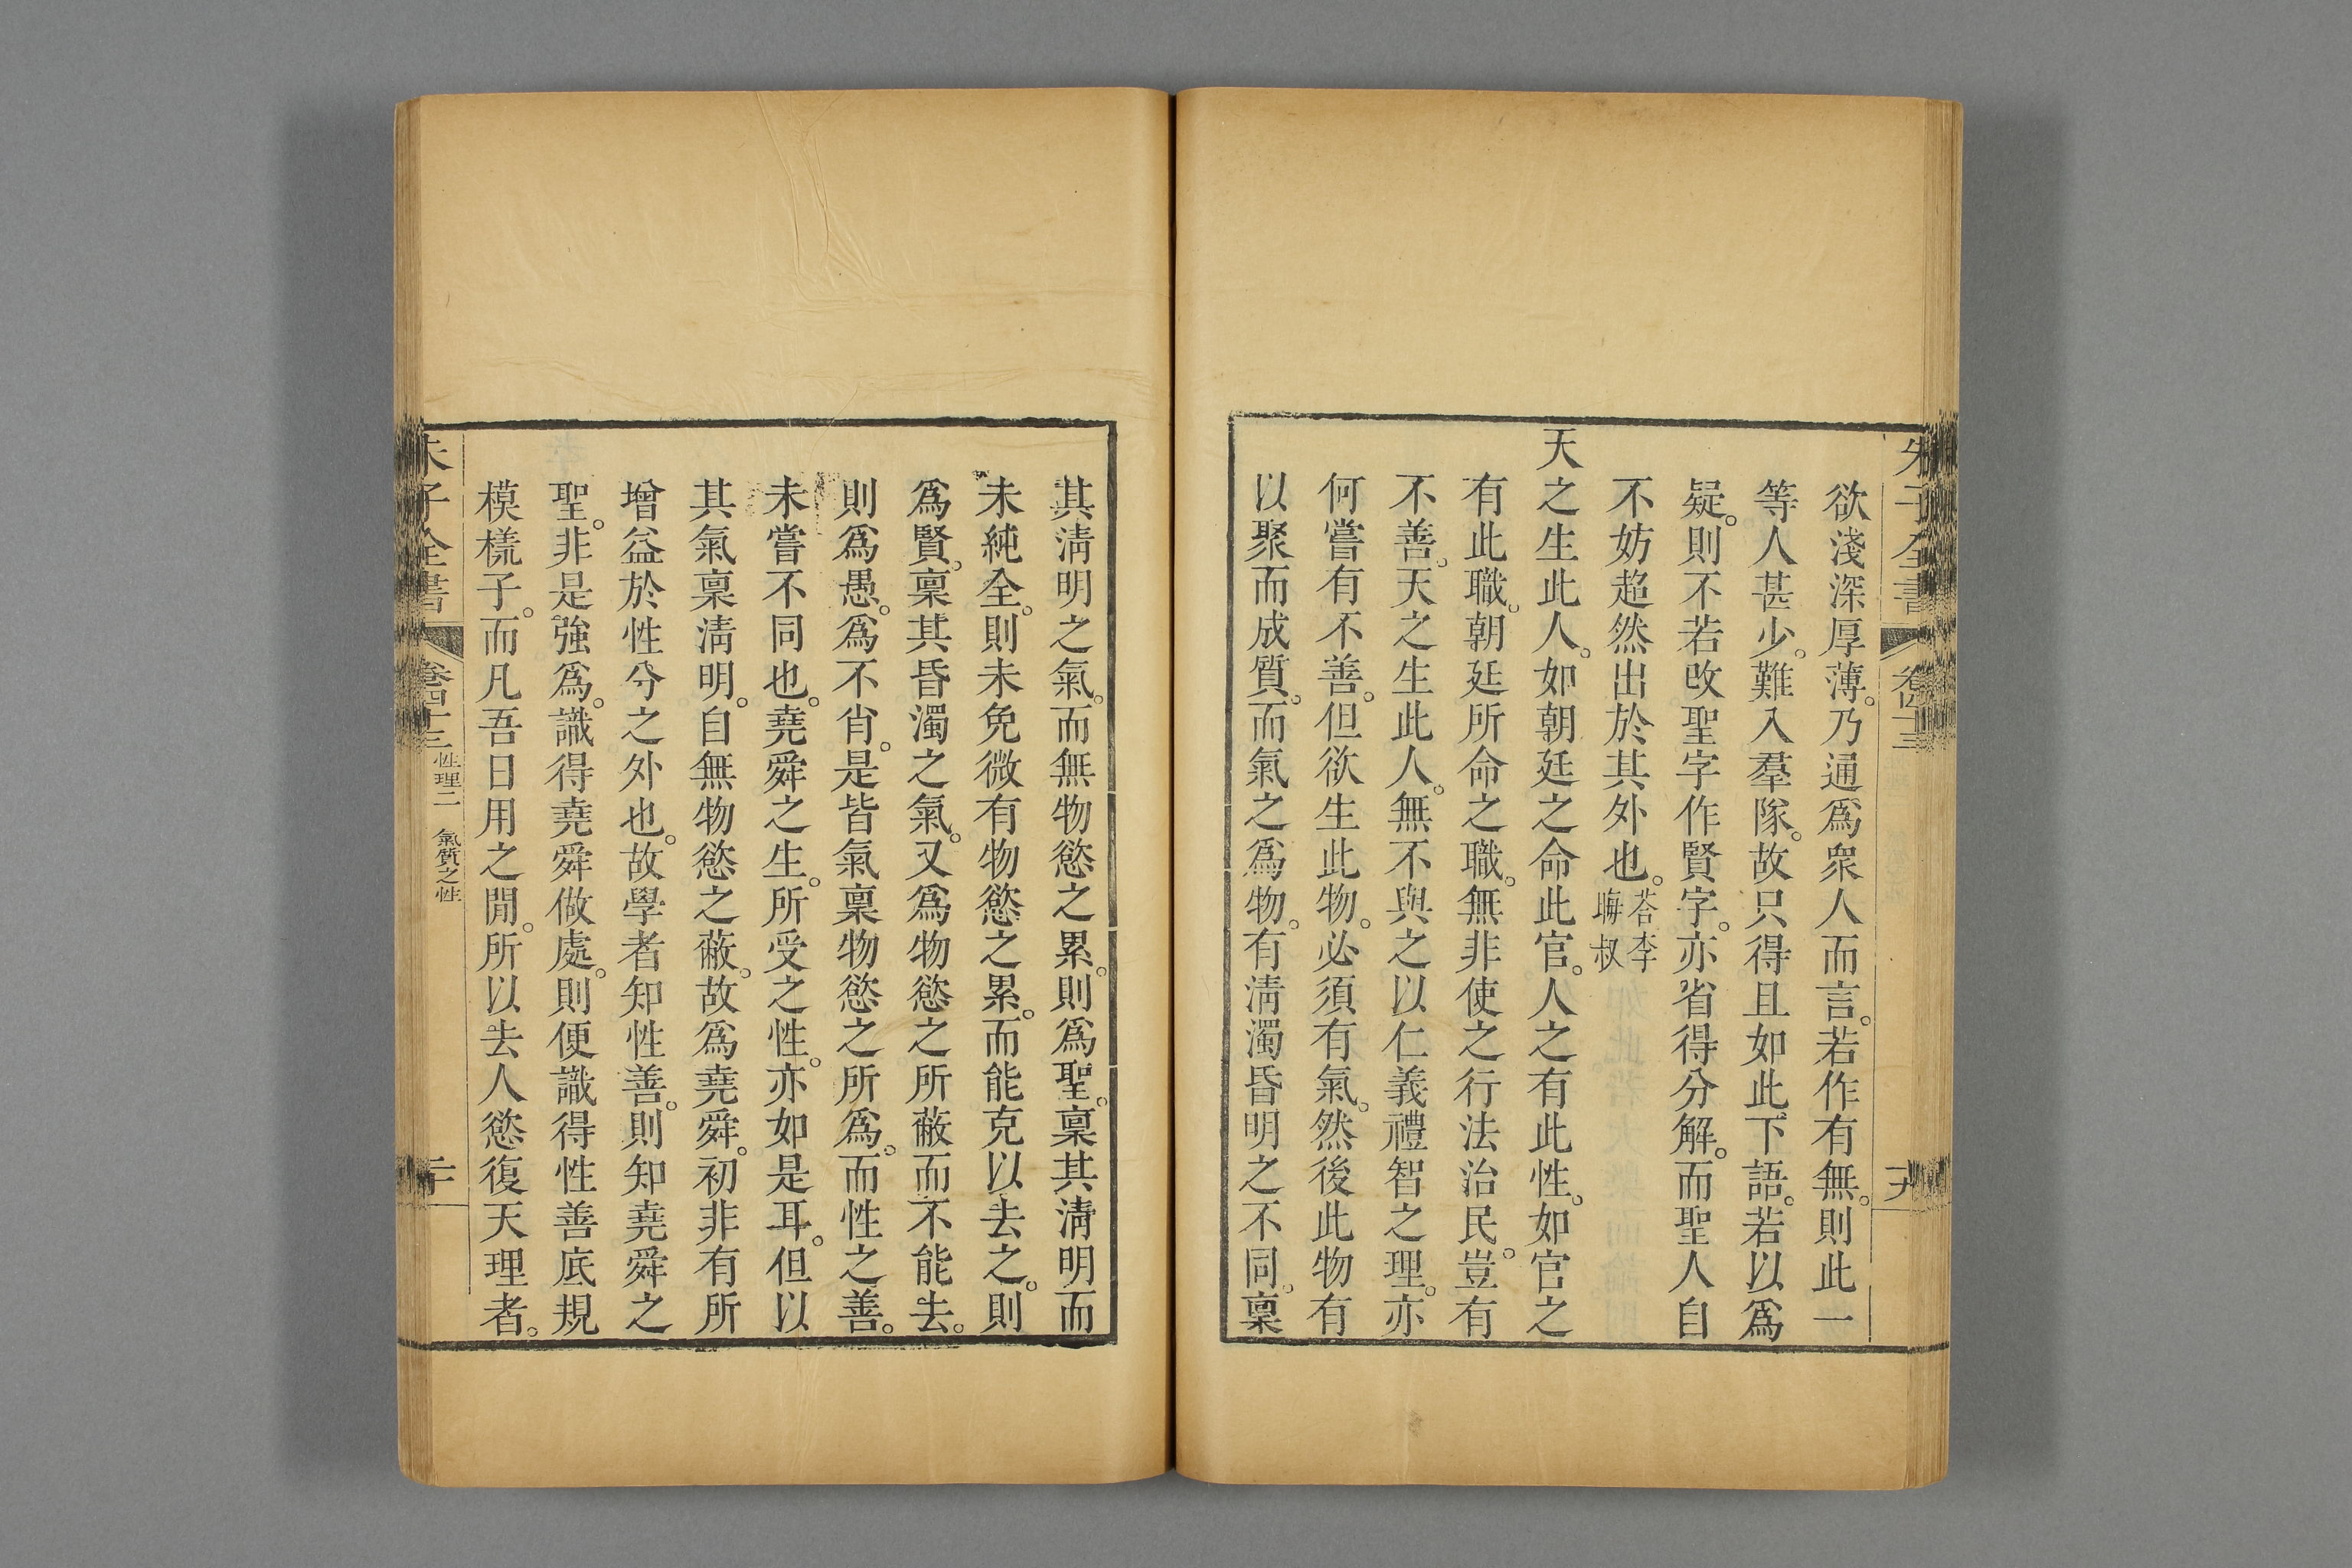 朱子全書 卷四十三 十九
欲淺深厚薄。乃通爲衆人而言。若作有無。則此一
等人甚少。難入羣隊。故只得且如此下語。若以爲
疑。則不若改聖字作賢字。亦省得分解。而聖人自
不妨超然出於其外也。荅李晦叔
天之生此人。如朝廷之命此官。人之有此性。如官之
有此職。朝廷所命之職。無非使之行法治民。豈有
不善。天之生此人。無不與之以仁義禮智之理。亦
何嘗有不善。但欲生此物。必須有氣。然後此物有
以聚而成質。而氣之爲物。有淸濁昏明之不同。稟
其淸明之氣。而無物慾之累。則爲聖。稟其淸明而
未純全。則未免微有物慾之累。而能克以去之。則
爲賢。稟其昏濁之氣。又爲物慾之所蔽而不能去。
則爲愚。爲不肖。是皆氣稟物慾之所爲。而性之善。
未嘗不同也。堯舜之生。所受之性。亦如是耳。但以
其氣稟淸明。自無物慾之蔽。故爲堯舜。初非有所
增益於性分之外也。故學者知性善。則知堯舜之
聖。非是強爲。識得堯舜做處。則便識得性善底規
模樣子。而凡吾日用之閒。所以去人慾復天理者。
朱子全書 卷四十三 性理二 氣質之性 二十